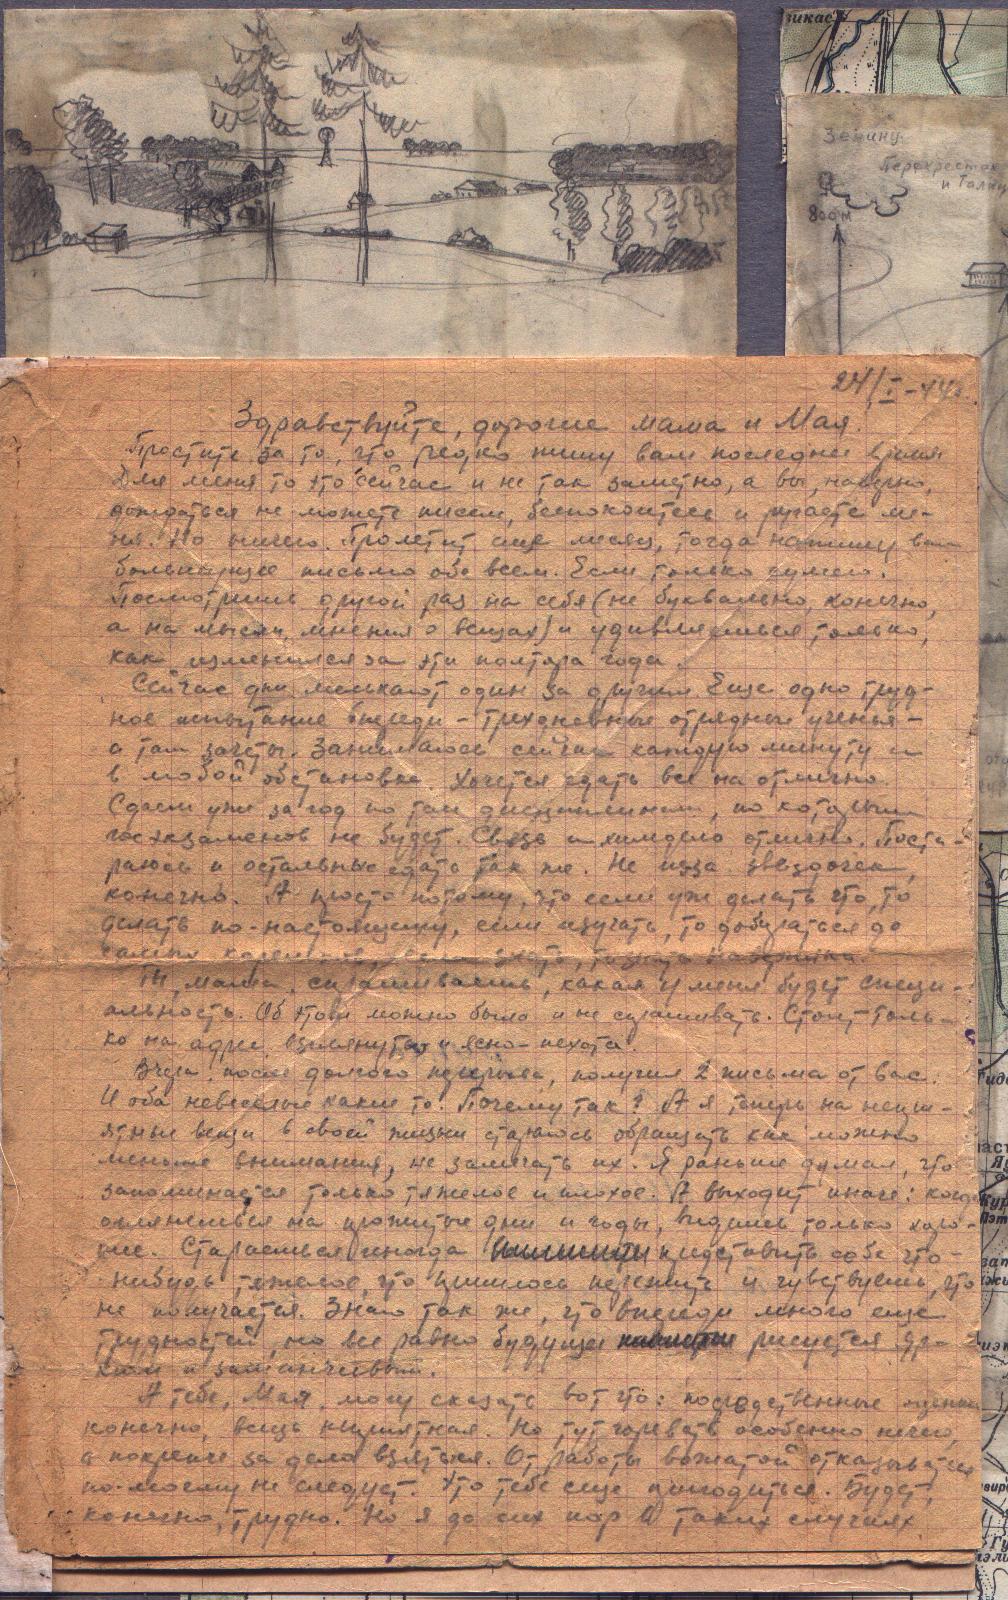 зикас
Зенину
Перекрестон
и Толи
800м
24/I-44г.
Здравствуйте, дорогие мама и Мая.
Простите за то, что редко пишу вам последнее время
Для меня то это сейчас и не так заметно, а вы, наверно,
дождаться не можете писем, беспокоитесь и ругаете ме-
ня. Но ничего. Пролетит еще месяц, тогда напишу вам
большущее письмо обо всем. Если только сумею.
Посмотришь другой раз на себя (не буквально, конечно,
а на мысли, мнения о вещах) и удивляешься только,
как изменился за эти полтора года.
Сейчас дни мелькают один за другим. Еще одно труд-
ное испытание впереди - трехдневные отрядные ученья -
а там зачеты. Занимаюсь сейчас каждую минуту и
в любой обстановке. Хочется сдать все на отлично.
Сдаем уже за год по тем дисциплинам, по которым
госэкзаменов не будет. Связь и химдело отлично. Поста-
раюсь и остальные сдать так же. Не из за звездочек,
конечно. А просто потому, что если уж делать что, то
делать по-настоящему, если изучать, то добираться до
самых корешков, если знать, то знать наверняка.
Ты, мама, спрашиваешь, какая у меня будет специ-
альность. Об этом можно было и не спрашивать. Стоит толь-
ко на адрес взглянуть и ясно - пехота.
Вчера, после долгого перерыва, получил 2 письма от вас.
И оба невеселые какие то. Почему так? А я теперь на непри-
ятные вещи в своей жизни стараюсь обращать как можно
меньше внимания, не замечать их. Я раньше думал, что
запоминается только тяжелое и плохое. А выходит иначе: когда
оглянешься на прожитые дни и годы, видишь только хоро-
шее. Стараешься иногда представить себе что-
нибудь тяжелое, что пришлось пережить и чувствуешь, что
не получается. Знаю так же, что впереди много еще
трудностей, но все равно будущее рисуется яр-
ким и заманчивым.
А тебе, Мая, могу сказать вот что: посредственные оценки
конечно, вещь неприятная. Но тут горевать особенно нечего,
а покрепче за дело взяться. От работы вожатой отказываться
по-моему не следует. Это тебе еще пригодиться. Будет,
конечно, трудно. Но я до сих пор в таких случаях